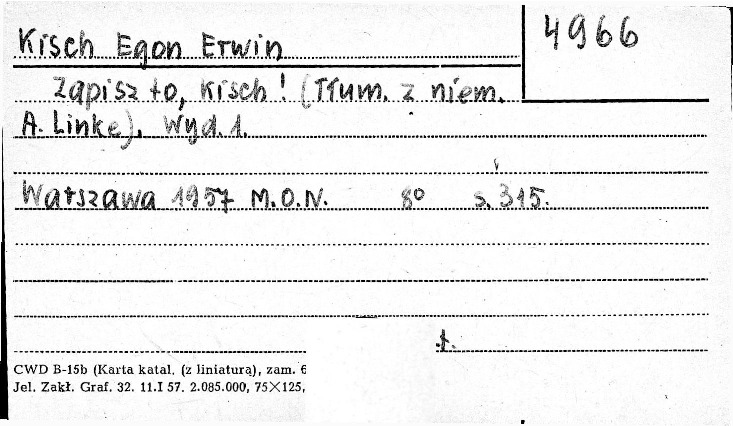 Kisch Egon Erwin
4966
Zapisz to, Kisch! (Tłum. z niem.
A. Linke). Wyd. 1.
Warszawa 1957 M.O.N. 8º s. 315.
t.
CWD B-15b (Karta katal. (z liniaturą), zam. 6
Jel. Zakł. Graf. 32. 11.I 57. 2.085.000, 75×125,